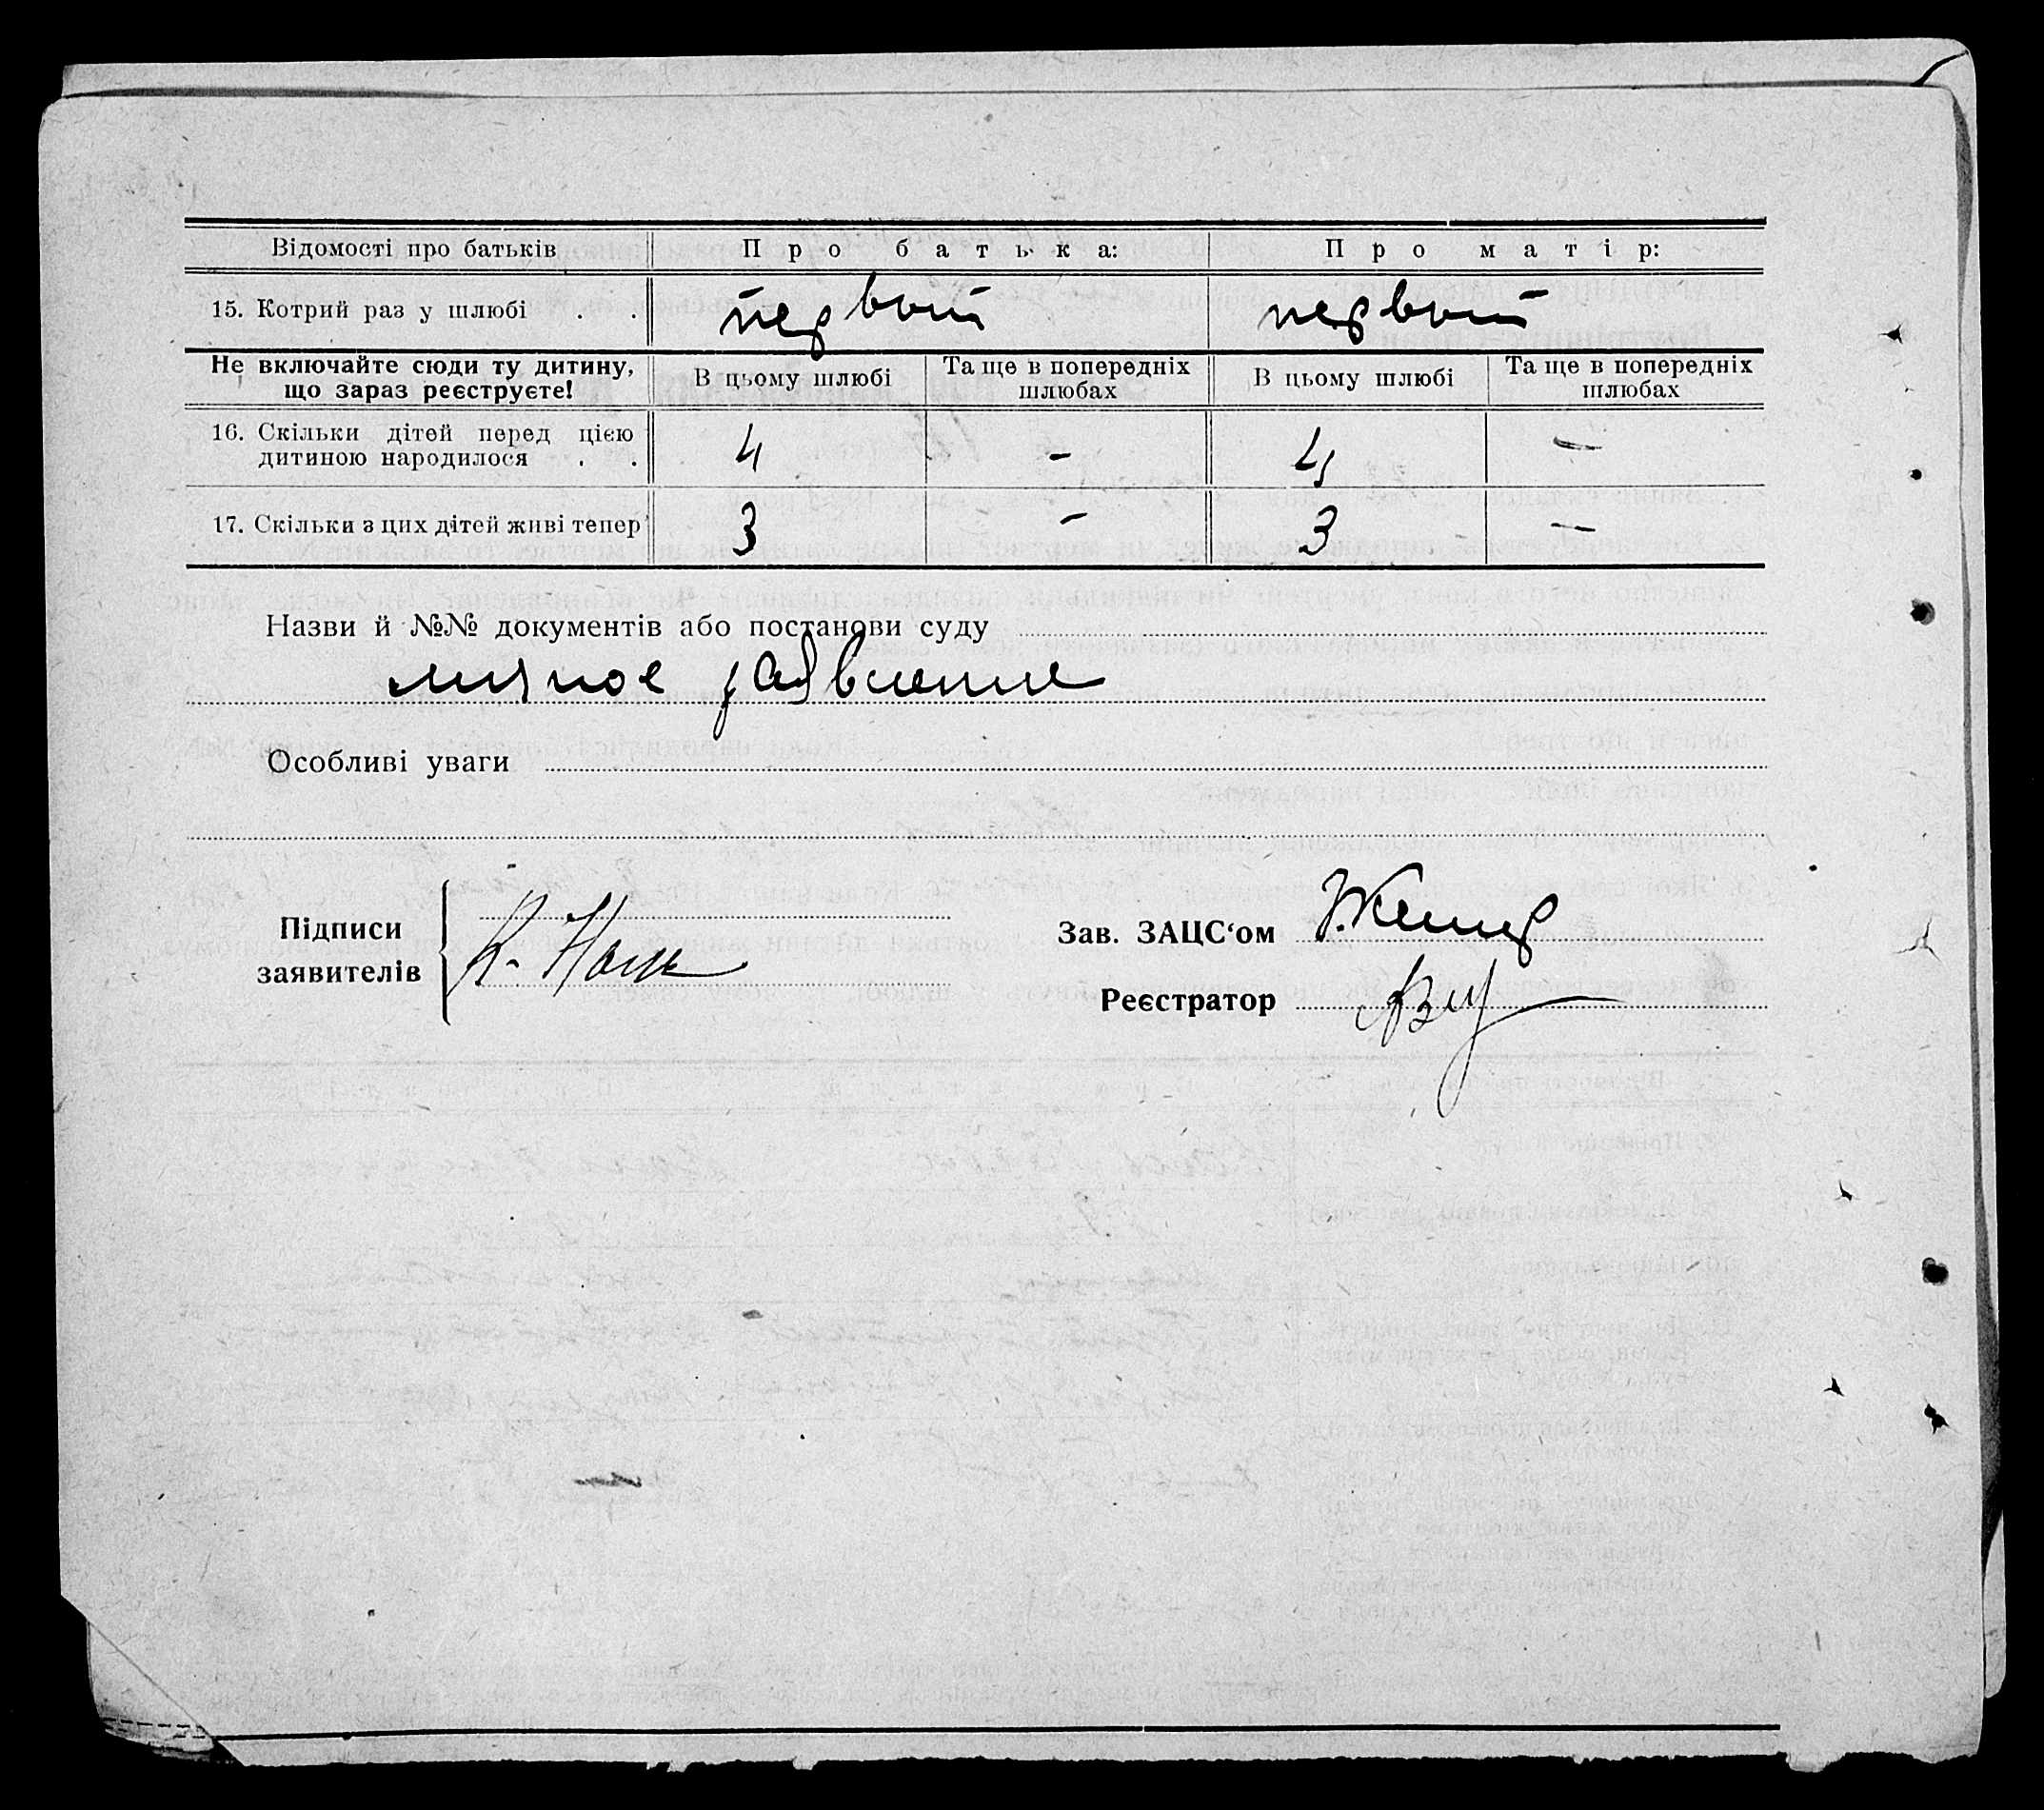 Відомості про батьків Про батька: Про матір:
15. Котрий раз у шлюбі . . первый первый
Не включайте сюди ту дитину, що зараз реєструєте! В цьому шлюбі Та ще в попередніх шлюбах В цьому шлюбі Та ще в попередніх шлюбах
16. Скільки дітей перед цією
дитиною народилося . . 4 – 4 –
17. Скільки з цих дітей живі тепер 3 – 3 –
Назви й №№ документів або постанови суду
личное заявление
Особливі уваги
Підписи
заявителів
Зав. ЗАЦС‘ом
Реєстратор